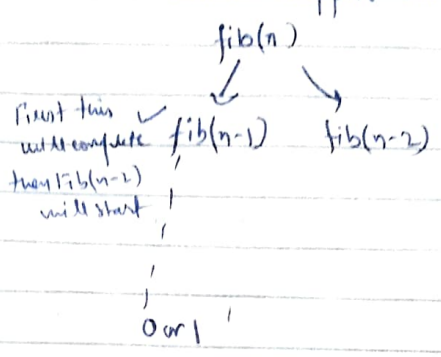 fib(n)
First this
will complete
then Fib(n-2)
will start
fib(n-1)
fib(n-2)
0 or 1